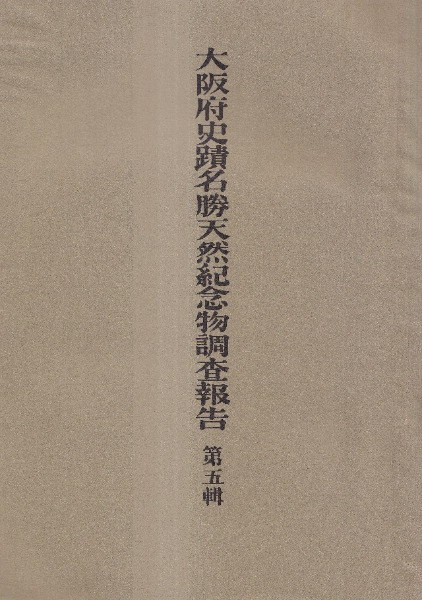 大阪府史蹟名勝天然紀念物調査報告 第五輯